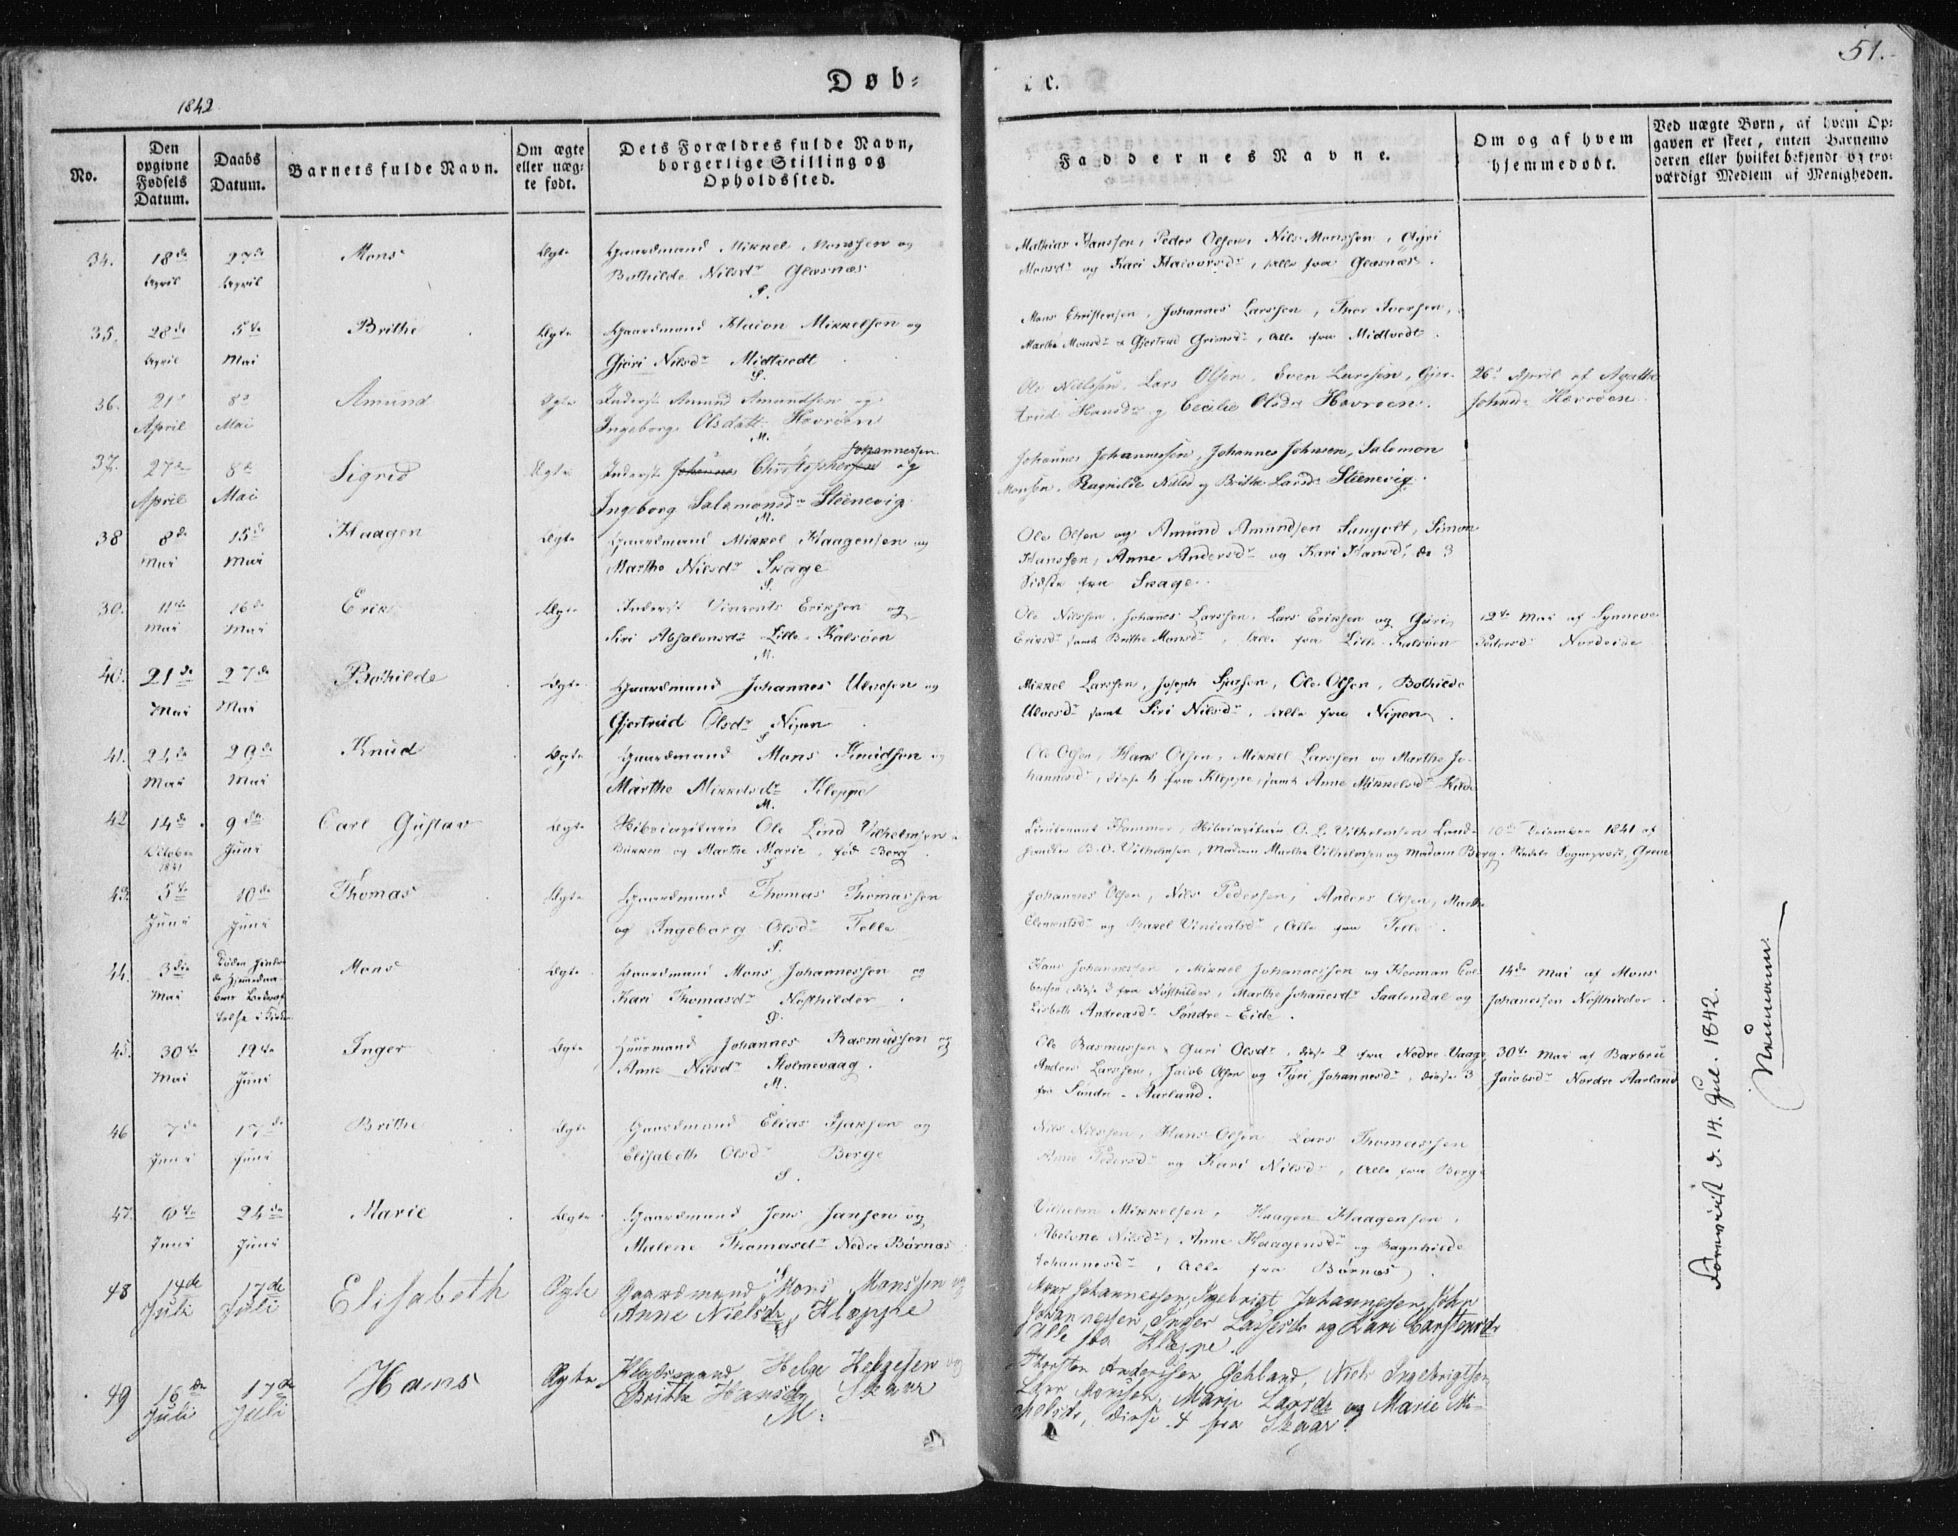 Døb-
te.
51.
1842
No.
Den opgivne Fødsels Datum.
Daabs Datum.
Barnets fulde Navn.
Om ægte eller uægte født.
Dets Forældres fulde Navn, borgerlige Stilling og Opholdssted.
Faddernes Navne.
Om og af hvem hjemmedøbt.
Ved uægte Børn, af hvem Opgaven er skeet, enten Barnemoderen eller hvilket bekjendt og troværdigt Medlem af Menigheden.
34. 18de April 27de April Mons Ægte Gaardmand Mikkel Monssen og
Bothilde Nilsdr Glæsnæs
S.
Mathias Hanssen, Peder Olsen, Nils Monssen,
Monsdr og Kari Haivorsdr, Alle fra Glæsnæs.
35. 28de April 5te Mai Brithe Ægte Gaardmand Haion Mikkelsen og
Gjøri Nilsdr Midtvedt
S.
Mons Christensen, Johannes Larssen, Iver Iversen,
Marthe Monsdr & Gjertrud Grimsdr, Alle fra Midtvedt.
36. 21de April 8de Mai Amund Ægte Inderste Amund Amundsen og
Ingeborg Olsdatt. Havrøen
M.
Ole Nielssen, Lars Olsen, Sven Larssen, Gjer-
trud Hansdr og Cecilie Olsdr Havrøen.
26de April af Agathe
Johnsdr Havrøen
37. 27de April 8de Mai Sigrid Ægte Inderste Johannes Christophersen Johannessen og
Ingeborg Salamonsdr Steenevig
M.
Johannes Johannessen, Johannes Johnsen, Salomon
Monsen, Ragnilde Nilsd og Brithe Larsdr Steenevig.
38 8de Mai 15de Mai Haagen Ægte Gaardmand Mikkel Haagensen og
Marthe Nilsdr Skage
S.
Ole Olsen og Amund Amundsen Sangolt, Simon
Hanssen, Anne Andersdr og Kari Hansdr, de 3
Sidste fra Skage.
39. 11te Mai 16de Mai Erik Ægte Inderst Vincents Eriksen og
Siri Absalonsdr Lille-Kalsøen
M.
Ole Nilssen, Johanes Larssen, Lars Eriksen og Guri
Eriksdr samt Brithe Monsdr, Alle fra Lille Kalsøen
12te Mai af Synneve
Pedersdr Nordeide
40. 21de Mai 27de Mai Bothilde Ægte Gaardmand Johannes Ulvesen og
Gjertrud Olsdr Nipen
S
Mikkel Larssen, Joseph Sjursen, Ole Olsen, Bothilde
Ulvesdr samt Siri Nilsdr, Alle fra Nipen.
41. 24de Mai 29de Mai Knud Ægte Gaardmand Mons Knudsen og
Marthe Mikkelsdr Kleppe
M.
Ole Olsen, Hans Olsen, Mikkel Larssen og Marthe Jo-
hannesdr, disse 4 fra Kleppe, samt Anne Mikkelsdr Kilde
42 14de October 1841 9de Juni Carl Gustav Ægte Ole Lind Vilhelmsen
Bakken og Marthe Marie, fød Berg
S
Lieutenant Hammer, O. L. Vilhelmsen, Land-
handler B. O. Vilhelmsen, Madam Marthe Vilhelmsen og Madam Berg.
10de December 1841 af
Sogneprest, Greve
43. 5te Juni 10de Juni Thomas Ægte Gaardmand Thomas Thomassen
og Ingeborg Olsdr Telle
S.
Johannes Olsen, Nils Pedersen, Anders Olsen, Marthe
Clementsdr og Barel Vincentsdr, Alle fra Telle.
44. 3die Mai Mons Ægte Gaardmand Mons Johannessen og
Kari Thomasdr Nøsthilder.
S.
Hans Johannessen, Mikkel Johannessen og Herman Col-
bensen, disse 3 fra Nøsthilder, Marthe Johanesdr Saalendal og
Lisbeth Andreasdr Søndre-Eide.
14de Mai af Mons
Johanessen Nøsthilder.
45. 30te Mai 19de Juni Inger Ægte Huusmand Johannes Rasmussen og
Anne Nilsdr Holmevaag.
M.
Ole Rasmussen & Guri Olsdr, disse 2 fra Nedre Vaage,
Anders Larssen, Jacob Olsen og Tyri Johannesdr, disse 3
fra Søndre-Aarland.
30te Mai af Barbru
Jacobsdr Nordre Aarland
46 7de Juni 17de Juni Brithe Ægte Gaardmand Elias Isaksen og
Elisabeth Olsdr Berge
S.
Nils Nilssen, Hans Olsen Lars Thomassen
Anne Pedersdr og Kari Nilsdr, Alle fra Berge
47. 6te Juni 24de Juni Marie Ægte Gaardmand Jens Jansen og
Malene Thomasdr Nedre Børnæs
S
Vilhelm Mikkelsen, Haagen Haagensen,
Abelone Nilsdr, Anne Haagensdr og Ragnhilde
Johannesdr, Alle fra Børnæs.
48 14de Juli 17de Juli Elisabeth Ægte Gaardmand Mons Monssen og
Anne Nielsdr Kleppe
S
Johannessen, Ingebrigt Johannessen, John
Johannessen, Inger Larsdr og Kari Carstensdr
Alle fra Kleppe.
49 16de Juli 17de Juli Hans Ægte Helge Helgesen og
Britha Hansdr Skaar
M.
Thorsten Anderssen Gehland, Niels Ingebrigtsen
Lars Monssen, Marie Larsdr og Marie Mi-
chelsdr, disse 4 fra Skaar.
Foreviist d. 14. Jul. 1842.
Neumann.